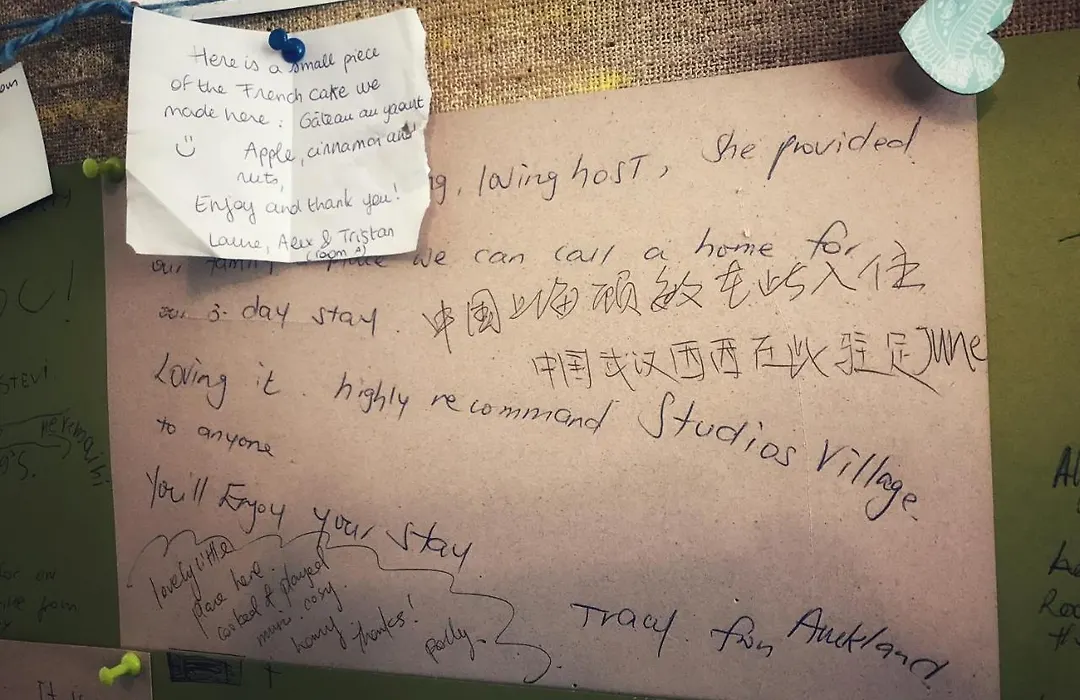 Here is a small piece
of the French cake we
made here: Gâteau au yaourt
Apple, cinnamon and
nuts,
Enjoy and thank you!
Laure, Alex & Tristan
(room A)
loving host, She provided
we can call a home for
3 day stay.
中国上海顾敏在此入住
中国武汉西西在此驻足June
Loving it. highly recommand Studios Village
to anyone
You'll Enjoy your stay
Tracy from Auckland
lovely little
place here.
cooked & played
music. cosy
homy thanks!
Polly.
OU!
It is